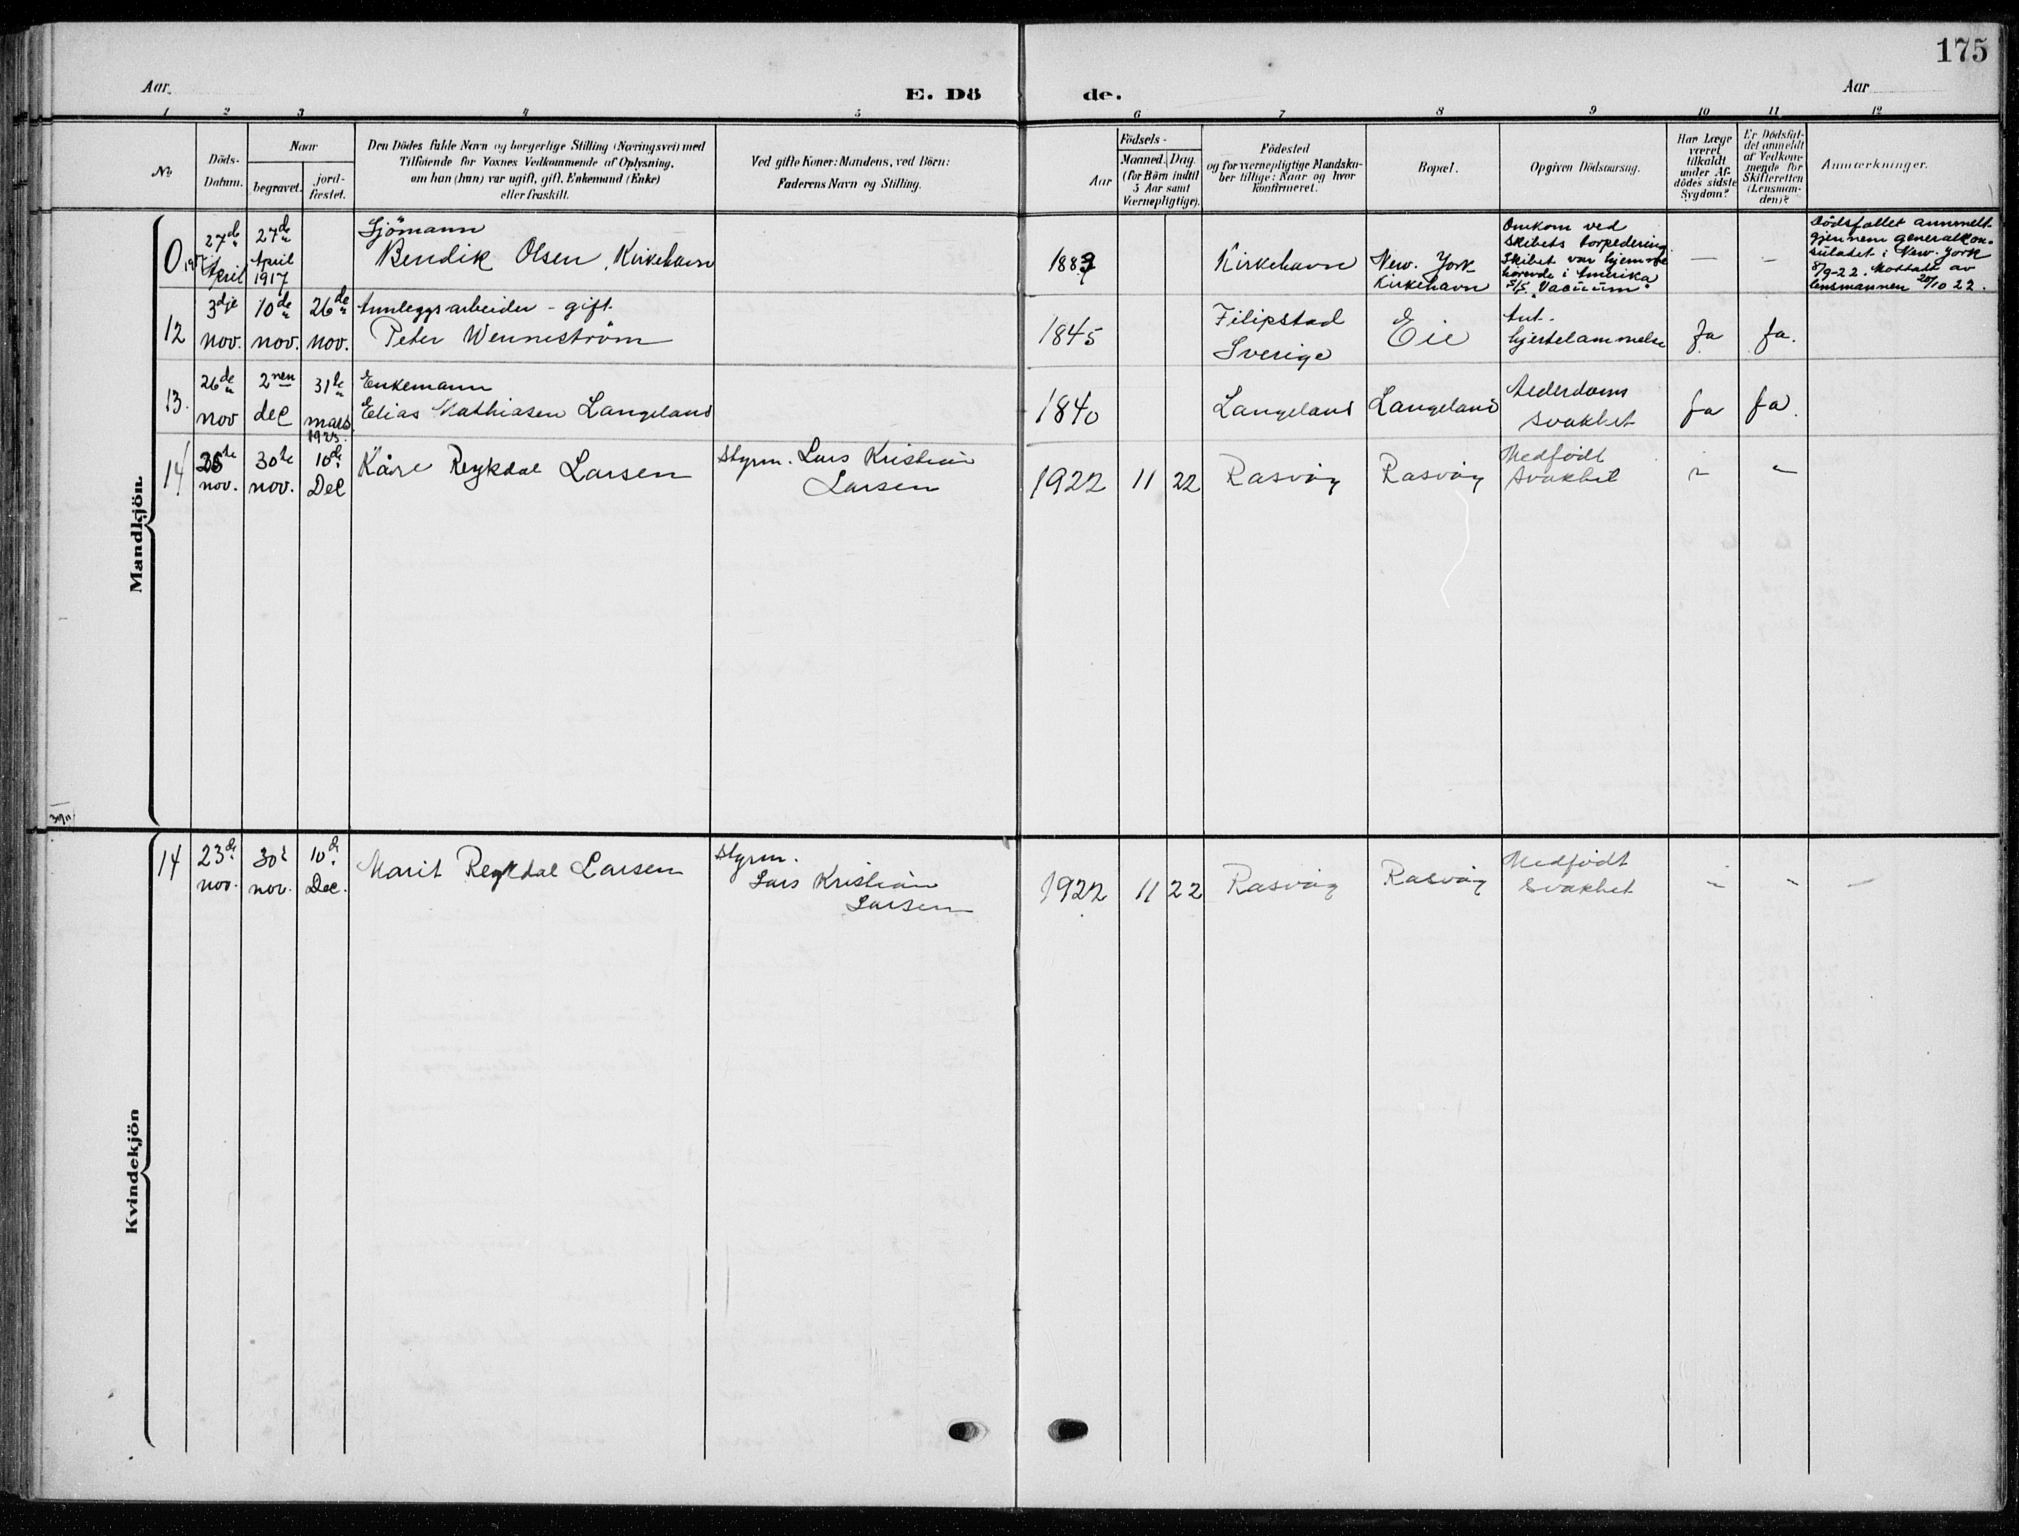 175
Aar
E. Dö de.
Aar
1 2 3 4 5 6 7 8 9 10 11 12
No
Döds-
Datum.
Naar
begravet.
jord-
fæstet.
Den Dödes fulde Navn og borgerlige Stilling (Næringsvei) med
Tilföiende for Voxnes Vedkommende af Oplysning,
om han (hun) var ugift, gift, Enkemand (Enke)
eller fraskilt.
Ved gifte Koner: Mandens, ved Börn:
Faderens Navn og Stilling.
Födsels-
Aar
Maaned. Dag.
(for Börn indtil
5 Aar samt
Værnepligtige).
Födested
og for værnepligtige Mandska-
ber tillige: Naar og hvor
konfirmeret.
Bopæl.
Opgiven Dödsaarsag.
Har Læge
været
tilkaldt
under Af-
dödes sidste
Sygdom?
Er Dödsfal-
det anmeldt
af Vedkom-
mende for
Skifteretten
(Lensman-
den)?
Anmærkninger.
Mandkjön.
0
27de
April
27de
April
1917
Sjömann
Bendik Olsen, Kirkehavn
1883
Kirkehavn
New. York
Kirkehavn
Omkom ved
skibets torpedering
Skibet var hjemme
hörende i Amerika
S/S "Vacuum"
— –
Dödsfallet anmelt
gjennem generalkon-
sulatet i New. York
8/9-22. Mottatt av
lensmannen 20/10 22.
12
3dje
nov.
10de
nov.
26de
nov.
Anleggsarbeider - gift
Peter Wenneström
1845
Filipstad
Sverige
Eie
Ant.
hjertelammelse
Ja Ja.
13.
26de
nov
2nen
dec
31te
mars
1923.
Enkemann
Elias Mathiasen Langeland
1840
Langeland
Langeland
Alderdoms
svakhet
Ja Ja.
14
nov.
30te
nov.
10de
Dec
Kåre Reykdal Larsen
Styrm. Lars Kristian
Larsen
1922 11 22
Rasvåg
Rasvåg
Medfödt
svakhet
30/11
Kvindekjön
14
23de
nov.
30te
nov.
10de
Dec.
Marit Reykdal Larsen
Styrm.
Lars Kristian
Larsen
1922 11 22
Rasvåg
Rasvåg
Medfödt
svakhet
– – –